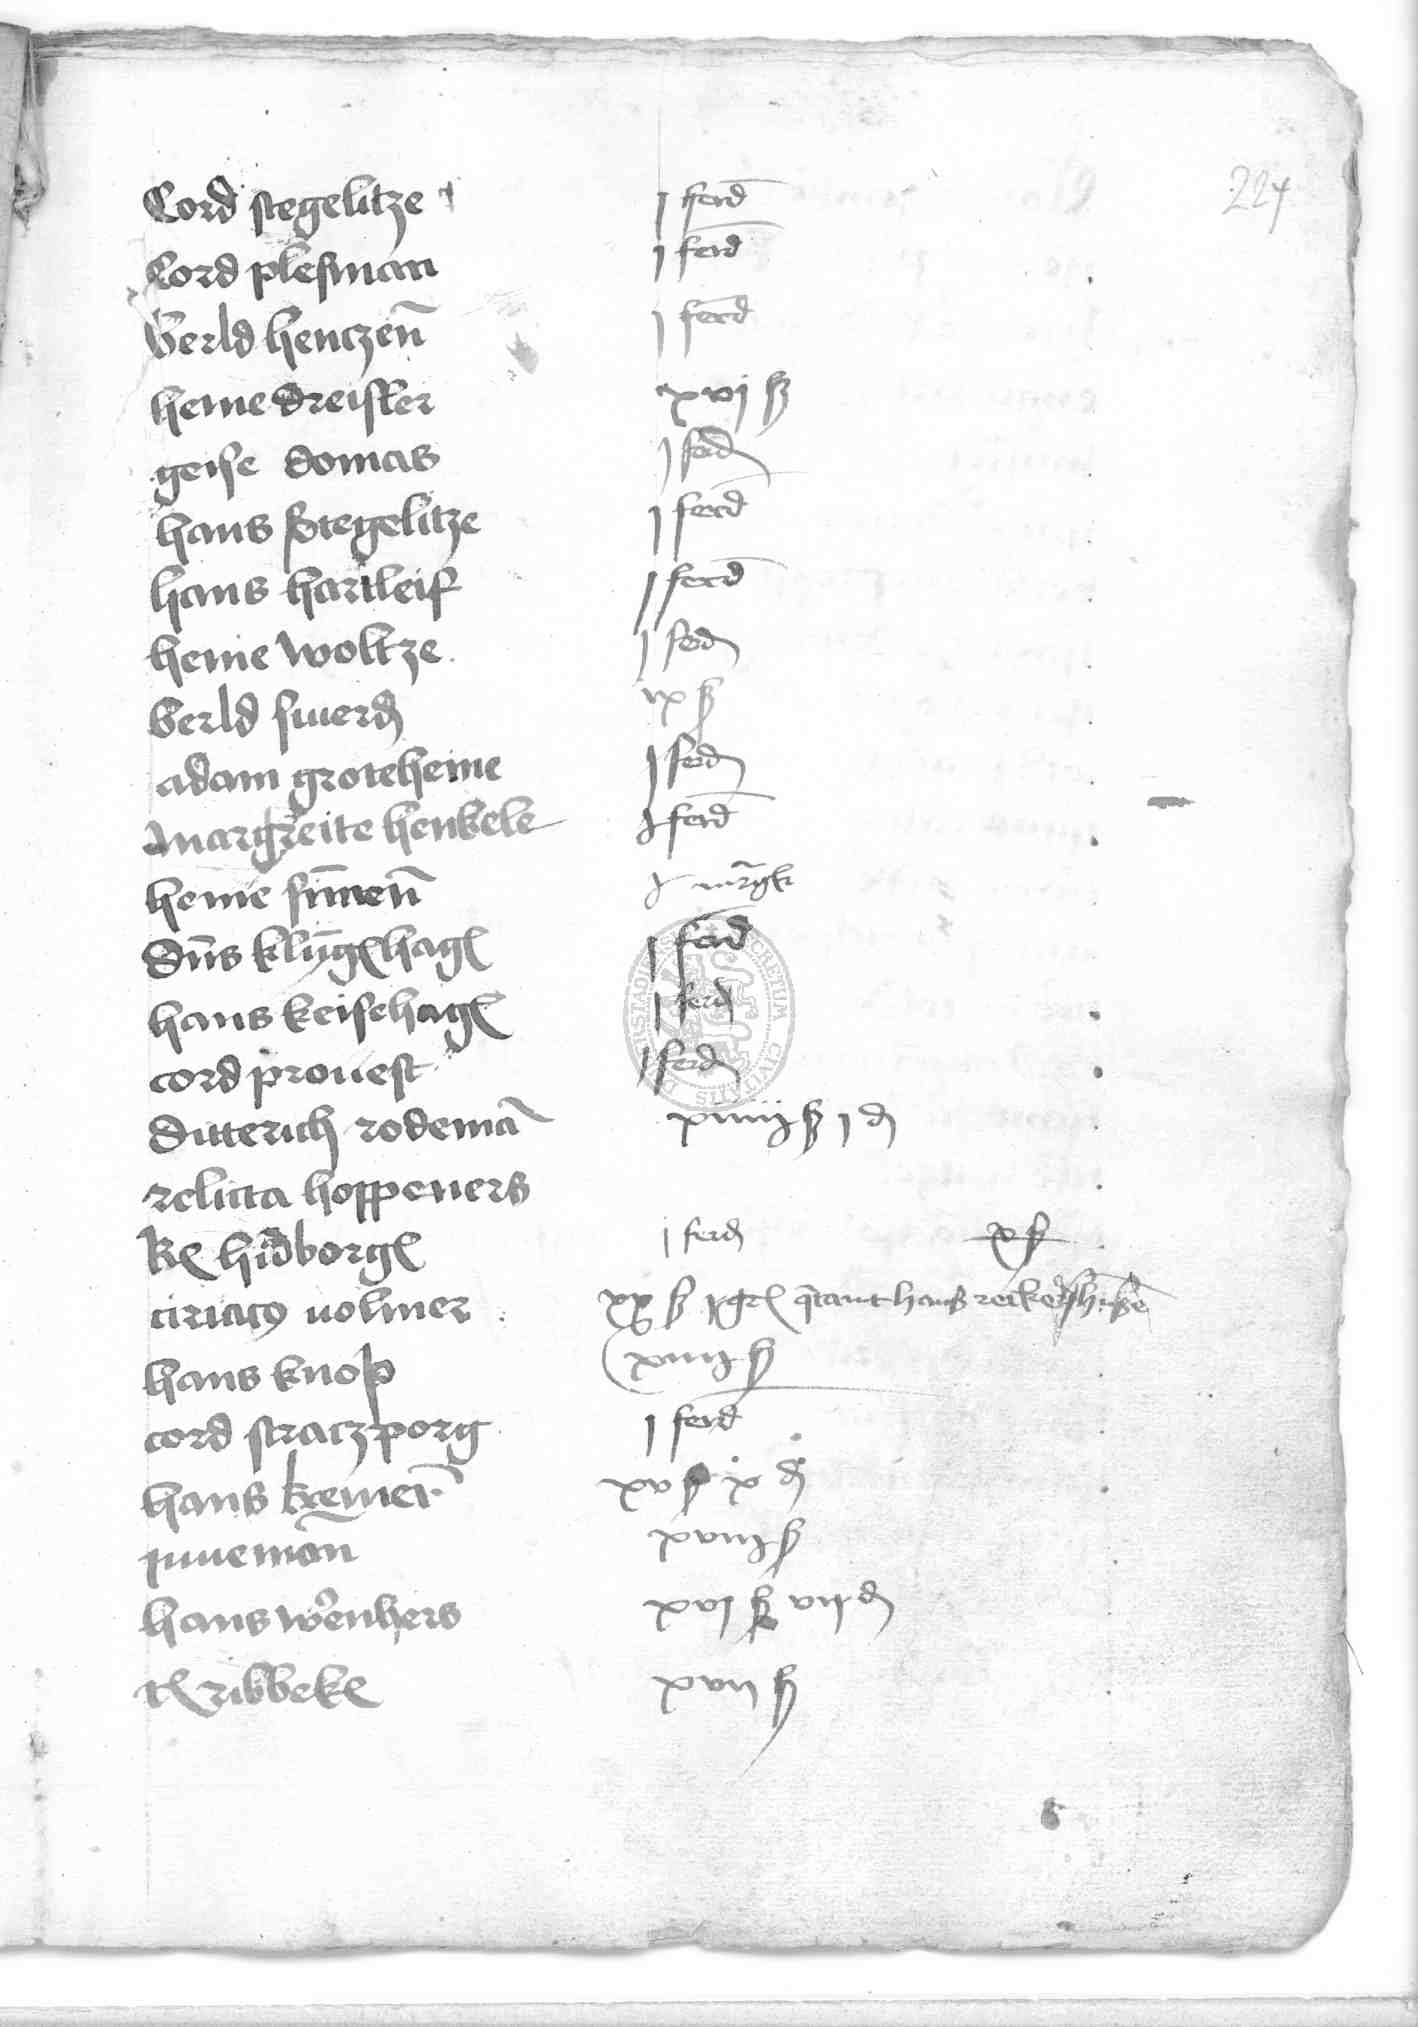 224
Cord stegelitze j ferd
Cord plesman j ferd
Berld henczen j ferd
heine dreister xvj ß
geise domas j ferd
hans Stegelitze j ferd
hans hartleif j ferd
heine woltze j ferd
Berld swerd ix ß
adam groteheine j ferd
Margreite henkele j ferd
heine simen j mrgk
dns klyngehag j ferd
hans keisehag j ferd
cord prouest j ferd
Ditterich rodema xiiij ß j d
relicta hoppeners
hildborg j ferd x ß
ciriacus volmer xx ß j gr tant hans
hans knop xiiij ß
cord straczporg j ferd
hans kremer xv ß x d
xviij ß
hans wenhers xvj ß vij d
ribbeke xvij ß
SECRETUM CIVITATIS